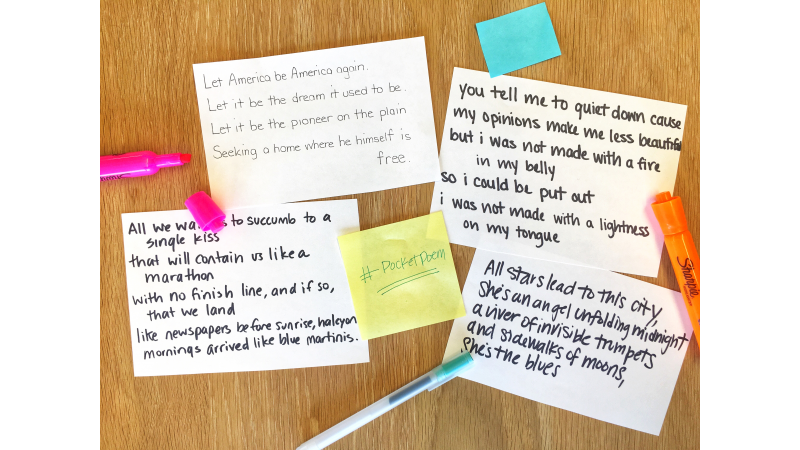 Let America be America again.
Let it be the dream it used to be.
Let it be the pioneer on the plain
Seeking a home where he himself is
free.
you tell me to quiet down cause
my opinions make me less beautiful
but i was not made with a fire
in my belly
so i could be put out
i was not made with a lightness
on my tongue
All we to succumb to a
single kiss
that will contain us like a
marathon
with no finish line, and if so,
that we land
like newspapers before sunrise, halcyon
mornings arrived like blue martinis.
#PocketPoem
All stars lead to this city,
She's an angel unfolding midnight
a river of invisible trumpets
and sidewalks of moons,
She's the blues
Sharpie